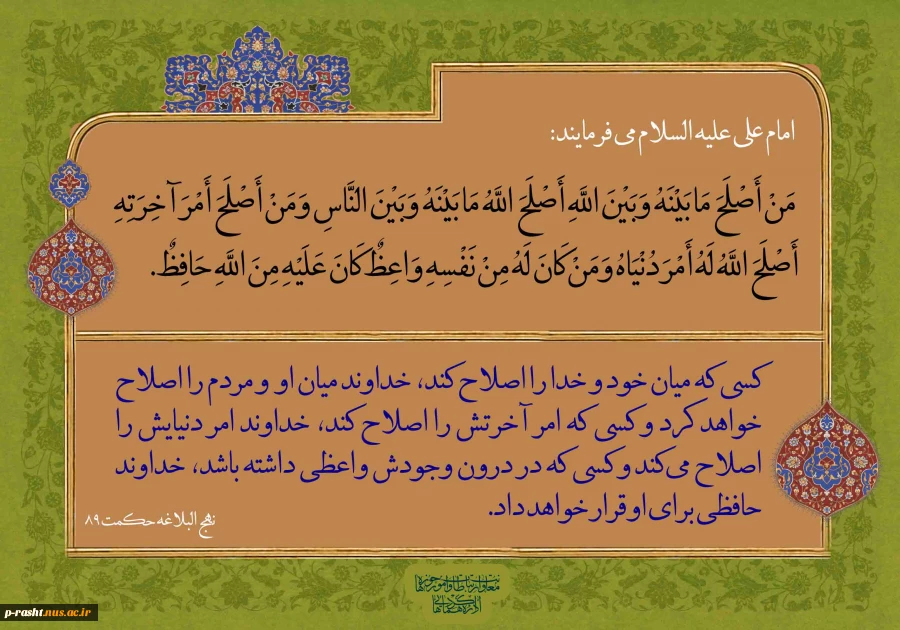 امام علی علیه السلام می فرمایند:
مَنْ أَصْلَحَ مَا بَيْنَهُ وَ بَيْنَ اللَّهِ أَصْلَحَ اللَّهُ مَا بَيْنَهُ وَ بَيْنَ النَّاسِ وَ مَنْ أَصْلَحَ أَمْرَ آخِرَتِهِ
أَصْلَحَ اللَّهُ لَهُ أَمْرَ دُنْيَاهُ وَ مَنْ كَانَ لَهُ مِنْ نَفْسِهِ وَاعِظٌ كَانَ عَلَيْهِ مِنَ اللَّهِ حَافِظٌ.
کسی که میان خود و خدا را اصلاح کند، خداوند میان او و مردم را اصلاح
خواهد کرد و کسی که امر آخرتش را اصلاح کند، خداوند امر دنیایش را
اصلاح می‌کند و کسی که در درون وجودش واعظی داشته باشد، خداوند
حافظی برای او قرار خواهد داد.
نهج البلاغه حکمت ۸۹
p-rasht.nus.ac.ir